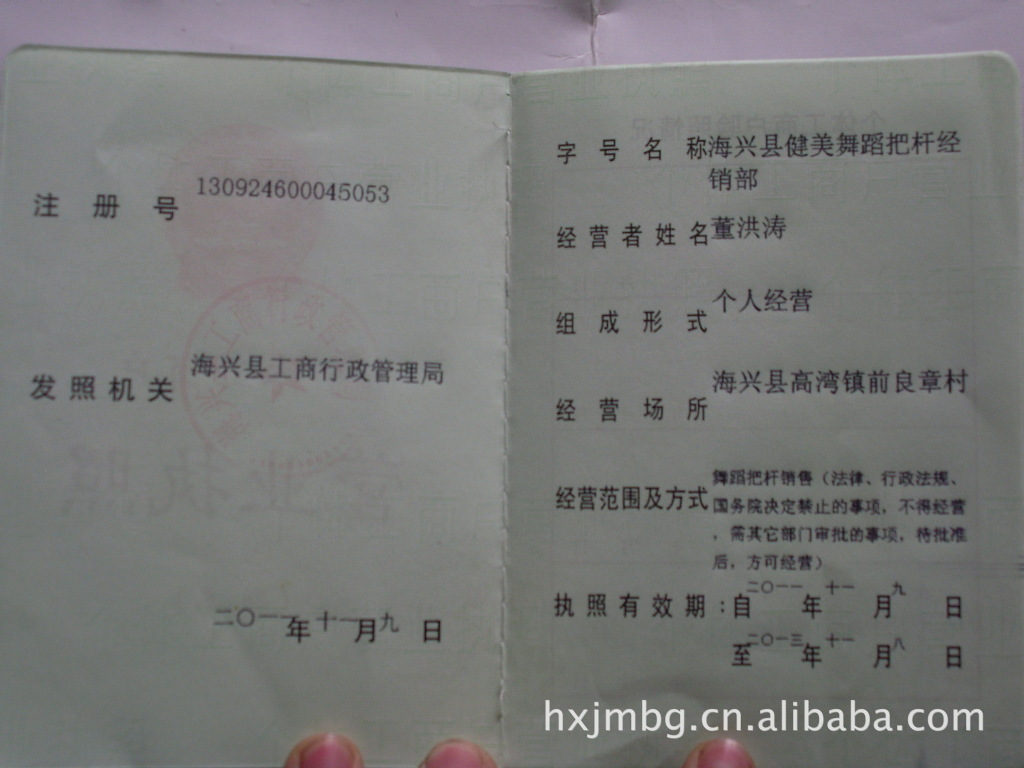 注册号 130924600045053
发照机关 海兴县工商行政管理局
二〇一一年十一月九日
字号名称 海兴县健美舞蹈把杆经
销部
经营者姓名 董洪涛
组成形式 个人经营
经营场所 海兴县高湾镇前良章村
经营范围及方式 舞蹈把杆销售（法律、行政法规、
国务院决定禁止的事项，不得经营
，需其它部门审批的事项，待批准
后，方可经营）
执照有效期：自二〇一一年十一月九日
至二〇一三年十一月八日
hxjmbg.cn.alibaba.com